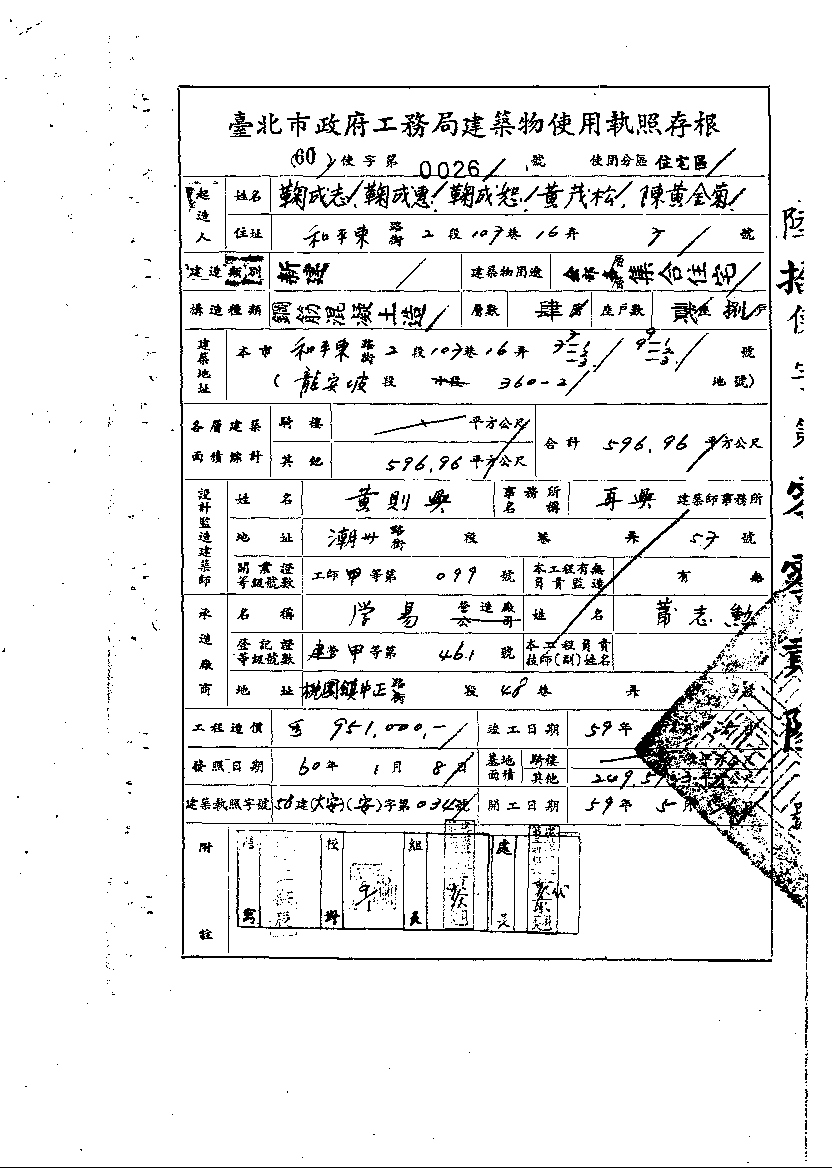 臺北市政府工務局建築物使用執照存根
(60)使字第 0026 號 使用分區 住宅區
起造人 姓名 鞠成志 鞠成惠 鞠成恕 黃茂松 陳黃全菊
住址 和平東路街 2 段 107 巷 16 弄 7 號
建造類別 新建 建築物用途 集合住宅
構造種類 鋼筋混凝土造 層數 肆層 座戶數 捌戶
建築地址 本市 和平東路街 2 段 107 巷 16 弄 號
(龍安坡 段 小段 360-2 地號)
各層建築面積總計 騎樓 平方公尺 合計 596.96 平方公尺
其他 596.96 平方公尺
設計監造建築師 姓名 黃則興 事務所名稱 再興 建築師事務所
地址 潮州路街 段 巷 弄 57 號
開業證等級號數 工師甲等第 099 號 本工程有無負責監造 有 無
承造廠商 名稱 學易 營造廠公司 姓名 蕭志勳
登記證等級號數 建營甲等第 461 號 本工程負責技師(副)姓名
地址 桃園鎮中正路街 段 48 巷 弄 號
工程造價 951,000.- 竣工日期 59年
發照日期 60年 1月 8日 基地面積 騎樓
其他 平方公尺
建築執照字號 56建(大安)(安)字第034號 開工日期 59年 5月
附註 繕寫 校對 組長 處長 代